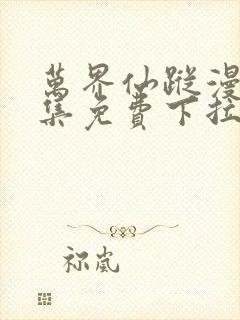 萬界仙蹤漫
集免費下拉
祢嵐